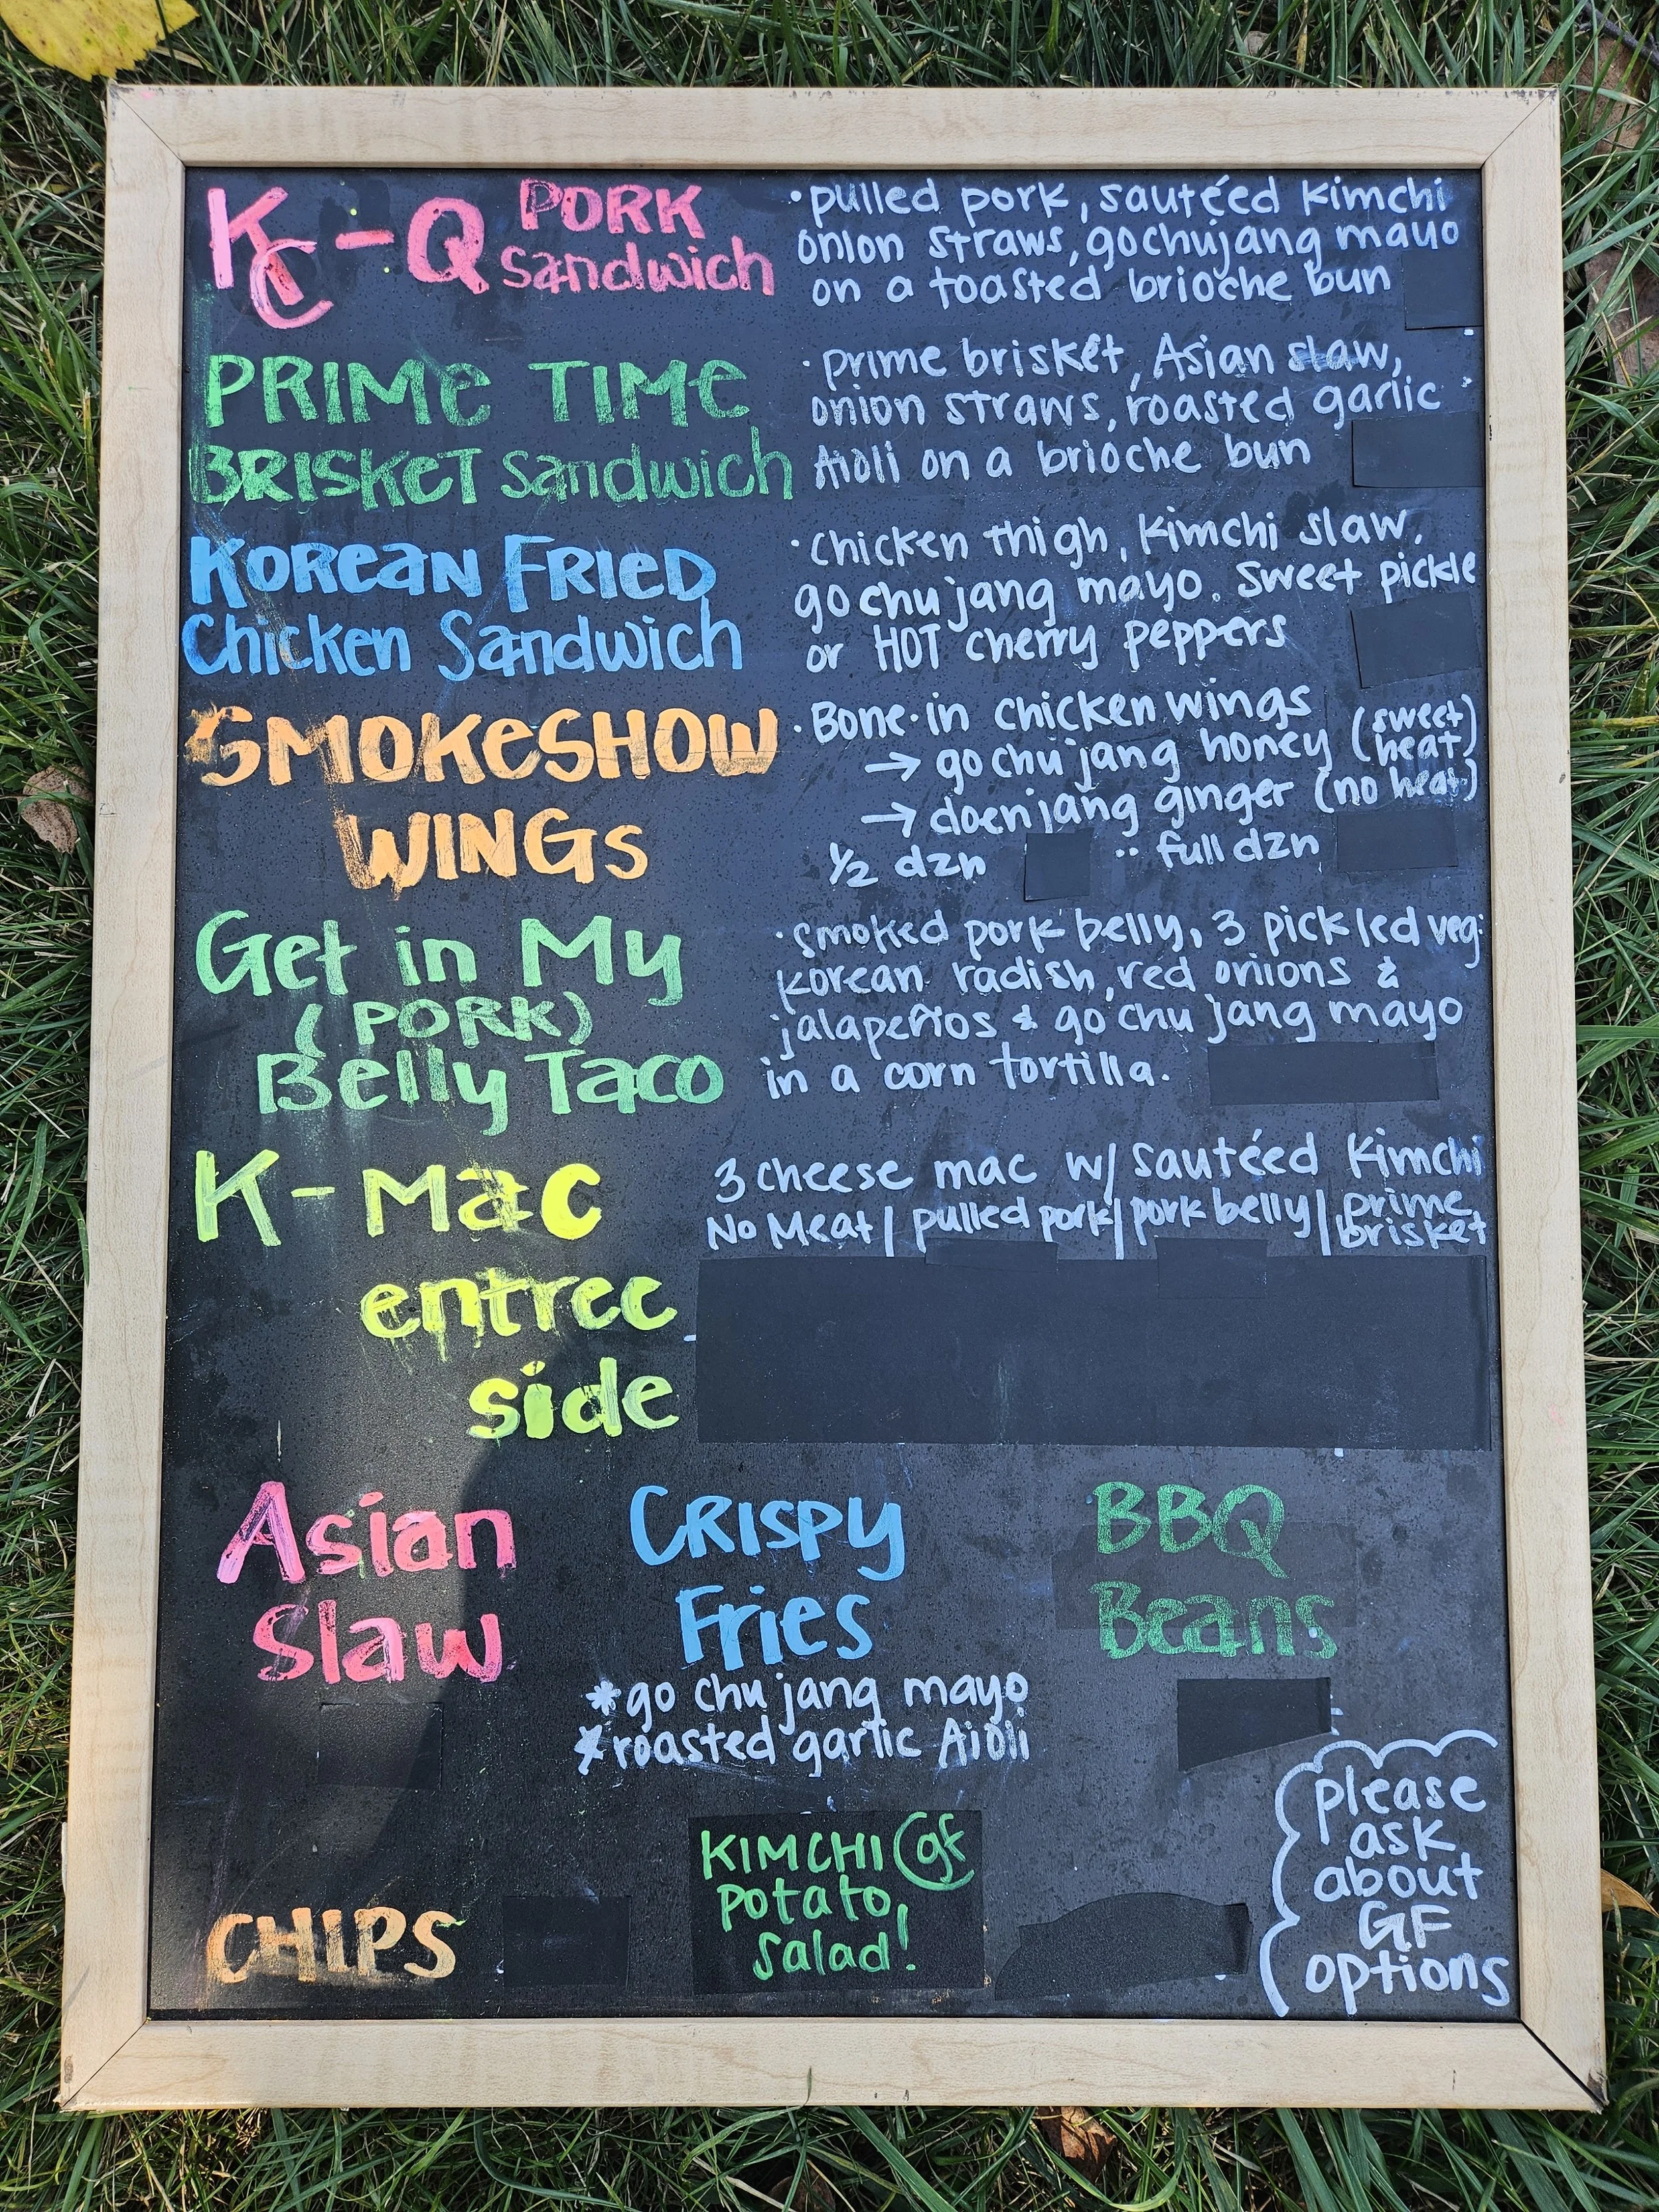 KC-Q PORK sandwich
• pulled pork, sautéed kimchi
onion straws, gochujang mayo
on a toasted brioche bun
PRIME TIME
BRISKET sandwich
• prime brisket, Asian slaw,
onion straws, roasted garlic
Aioli on a brioche bun
KOREAN FRIED
Chicken Sandwich
• chicken thigh, kimchi slaw,
go chu jang mayo. sweet pickle
or HOT cherry peppers
SMOKESHOW
WINGS
• Bone-in chicken wings
→ go chu jang honey (sweet heat)
→ doenjang ginger (no heat)
1/2 dzn •• full dzn
Get in My
(PORK)
Belly Taco
• smoked pork belly, 3 pickled veg:
korean radish, red onions &
jalapeños & go chu jang mayo
in a corn tortilla.
K-mac
3 cheese mac w/ sautéed Kimchi
No Meat | pulled pork | pork belly | prime brisket
entree
side
Asian
Slaw
CRISPY
Fries
*go chu jang mayo
*roasted garlic Aioli
BBQ
Beans
CHIPS
KIMCHI gf
potato
salad!
please
ask
about
GF
options